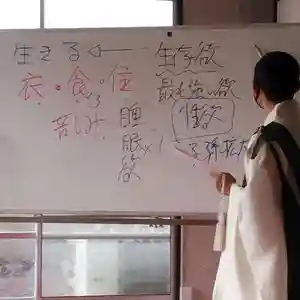 生きる ← 生存欲
衣・食・住
最も強い欲
苦しみ
性欲
睡眠欲
子孫拡大